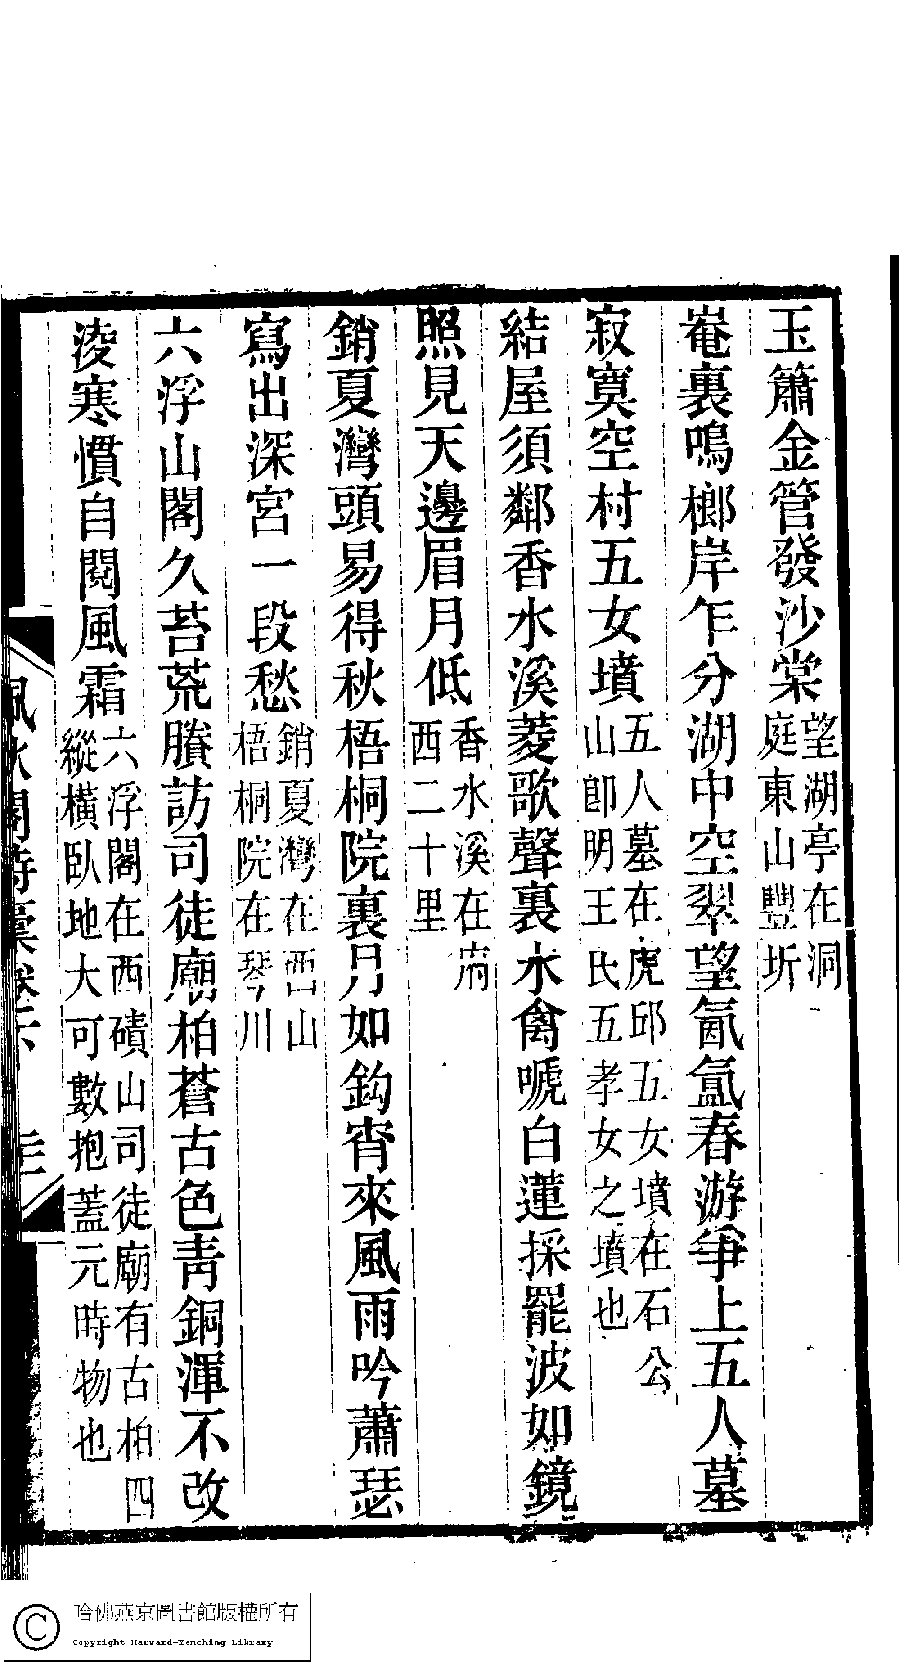 玉簫金管發沙棠望湖亭在洞庭東山豐圻
菴裏鳴榔岸乍分湖中空翠望氤氳春游爭上五人墓
寂寞空村五女墳五人墓在虎邱五女墳在石公山卽明王氏五孝女之墳也
結屋須鄰香水溪菱歌聲裏水禽嗁白蓮採罷波如鏡
照見天邊眉月低香水溪在府西二十里
銷夏灣頭易得秋梧桐院裏月如鈎宵來風雨吟蕭瑟
寫出深宮一段愁銷夏灣在西山梧桐院在琴川
六浮山閣久苔荒賸訪司徒廟柏蒼古色靑銅渾不改
淩寒慣自閱風霜六浮閣在西磧山司徒廟有古柏四縱橫臥地大可數抱蓋元時物也
哈佛燕京圖書館版權所有
Copyright Harvard-Yenching Library